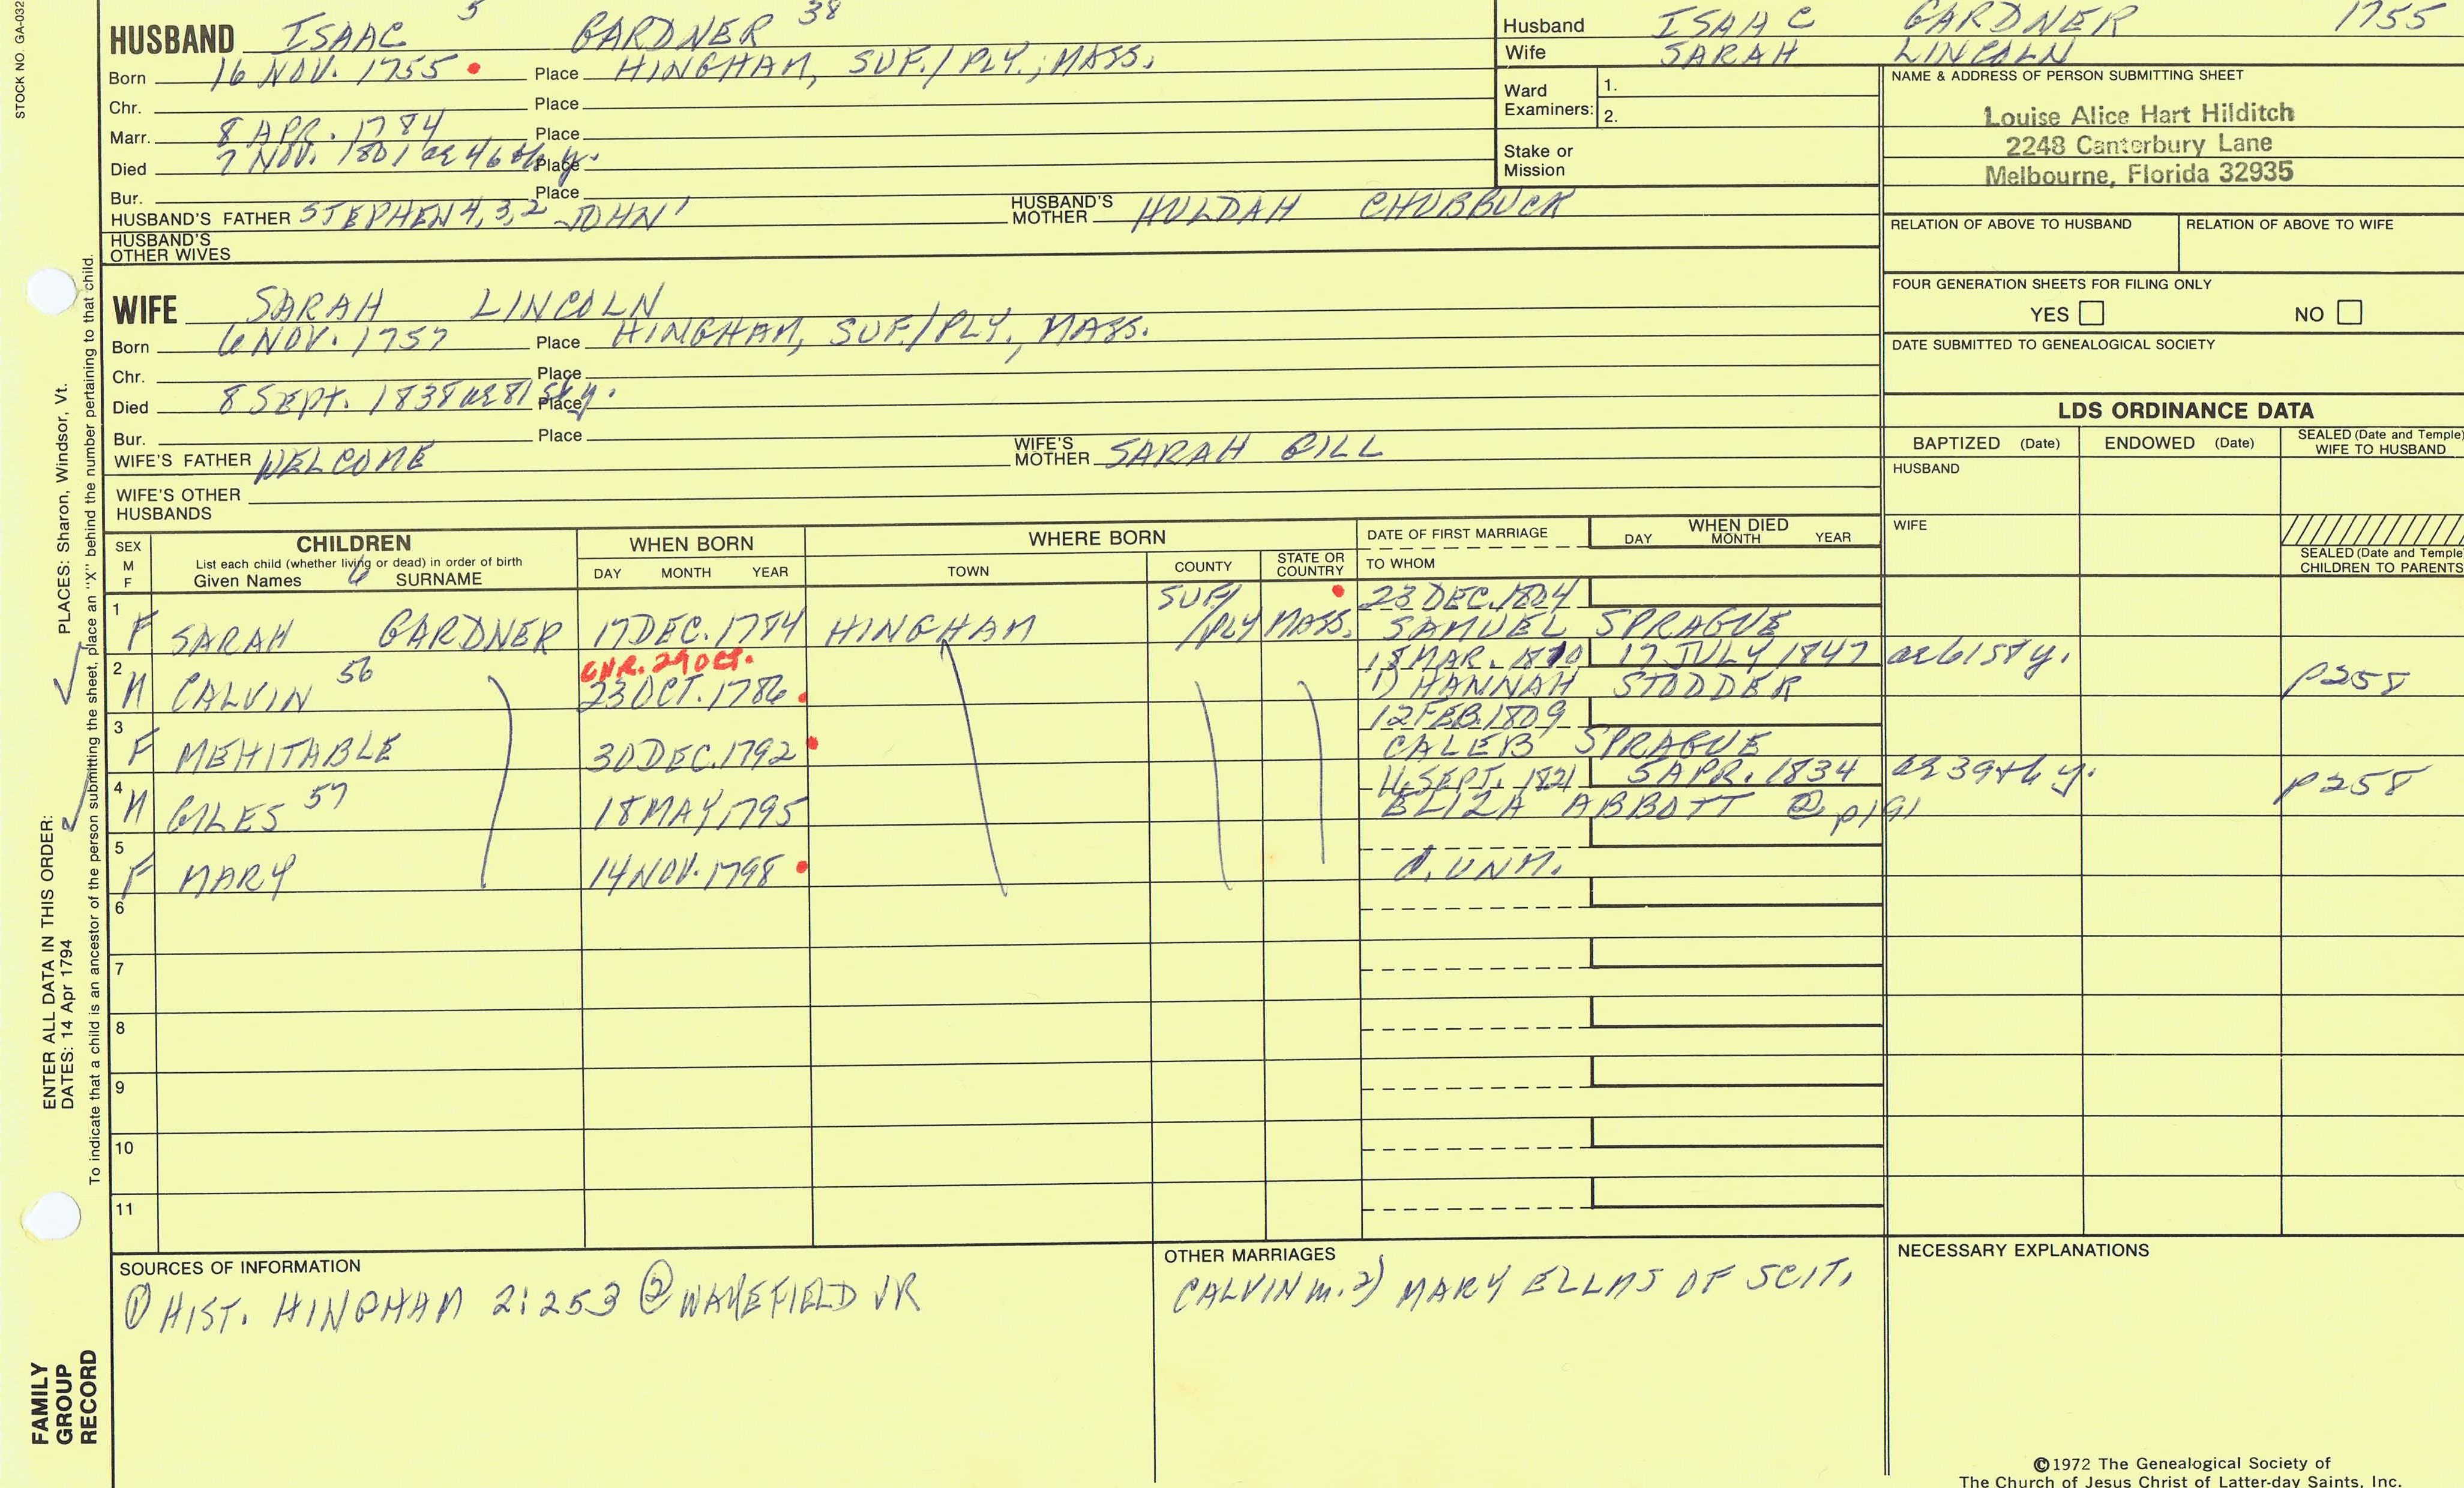 STOCK NO. GA-032
HUSBAND ISAAC 5 GARDNER 38
Born 16 NOV. 1755 Place HINGHAM, SUF./PLY., MASS.
Chr. Place
Marr. 8 APR. 1784 Place
Died 7 NOV. 1801 ae 46th y. Place
Bur. Place
HUSBAND'S FATHER STEPHEN 4,3,2 JOHN 1 HUSBAND'S MOTHER HULDAH CHUBBUCK
HUSBAND'S OTHER WIVES
WIFE SARAH LINCOLN
Born 6 NOV. 1757 Place HINGHAM, SUF./PLY., MASS.
Chr. Place
Died 8 SEPT. 1838 ae 81st y. Place
Bur. Place
WIFE'S FATHER WELCOME WIFE'S MOTHER SARAH GILL
WIFE'S OTHER HUSBANDS
Husband ISAAC GARDNER 1755
Wife SARAH LINCOLN
Ward Examiners: 1.
2.
Stake or Mission
NAME & ADDRESS OF PERSON SUBMITTING SHEET
Louise Alice Hart Hilditch
2248 Canterbury Lane
Melbourne, Florida 32935
RELATION OF ABOVE TO HUSBAND RELATION OF ABOVE TO WIFE
FOUR GENERATION SHEETS FOR FILING ONLY
YES NO
DATE SUBMITTED TO GENEALOGICAL SOCIETY
LDS ORDINANCE DATA
BAPTIZED (Date) ENDOWED (Date) SEALED (Date and Temple) WIFE TO HUSBAND
HUSBAND
WIFE
SEALED (Date and Temple) CHILDREN TO PARENTS
SEX M F
CHILDREN
List each child (whether living or dead) in order of birth
Given Names 6 SURNAME
WHEN BORN
DAY MONTH YEAR
WHERE BORN
TOWN COUNTY STATE OR COUNTRY
DATE OF FIRST MARRIAGE
TO WHOM
WHEN DIED
DAY MONTH YEAR
1 F SARAH GARDNER 17 DEC. 1784 HINGHAM SUF/ /PLY MASS. 23 DEC. 1804
SAMUEL SPRAGUE
2 M CALVIN 56 CHR. 29 OCT. 23 OCT. 1786 18 MAR. 1810 17 JULY 1847 ae 61st y. p258
1) HANNAH STODDER
3 F MEHITABLE 30 DEC. 1792 12 FEB. 1809
CALEB SPRAGUE
4 M GILES 57 18 MAY 1795 16 SEPT. 1821 5 APR. 1834 ae 39th y. p258
ELIZA ABBOTT ② p191
5 F MARY 14 NOV. 1798 d. UNM.
6
7
8
9
10
11
SOURCES OF INFORMATION
① HIST. HINGHAM 2:253 ② WAKEFIELD VR
OTHER MARRIAGES
CALVIN m. 2) MARY ELLMS OF SCIT.
NECESSARY EXPLANATIONS
PLACES: Sharon, Windsor, Vt.
ENTER ALL DATA IN THIS ORDER:
DATES: 14 Apr 1794
To indicate that a child is an ancestor of the person submitting the sheet, place an "X" behind the number pertaining to that child.
FAMILY GROUP RECORD
©1972 The Genealogical Society of
The Church of Jesus Christ of Latter-day Saints, Inc.